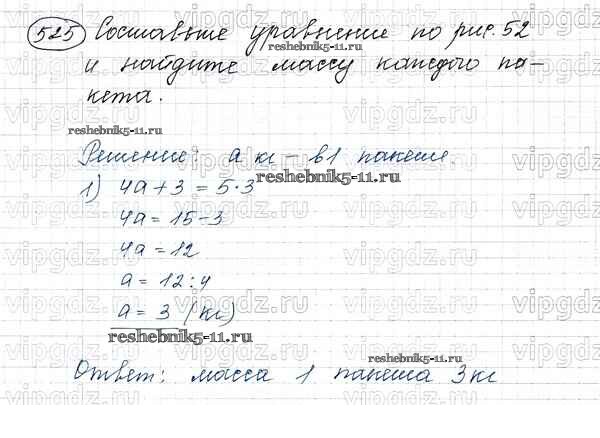 525 Составьте уравнение по рис. 52
reshebnik5-11.ru
и найдите массу каждого па-
кета.
reshebnik5-11.ru
Решение: а кг – в 1 пакете.
reshebnik5-11.ru
1) 4а + 3 = 5·3
4а = 15 – 3
4а = 12
а = 12 : 4
а = 3 (кг)
reshebnik5-11.ru
reshebnik5-11.ru
Ответ: масса 1 пакета 3 кг
vipgdz.ru